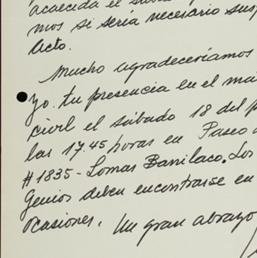 acaecida el
mos si sería necesario sus
Acto.
Mucho agradeceríamos
yo. tu presencia en el ma
civil el sábado 18 del p
las 17.45 horas en Paseo
#1835 - Lomas Barrilaco. Los
Genios deben encontrarse en
ocasiones. Un gran abrazo